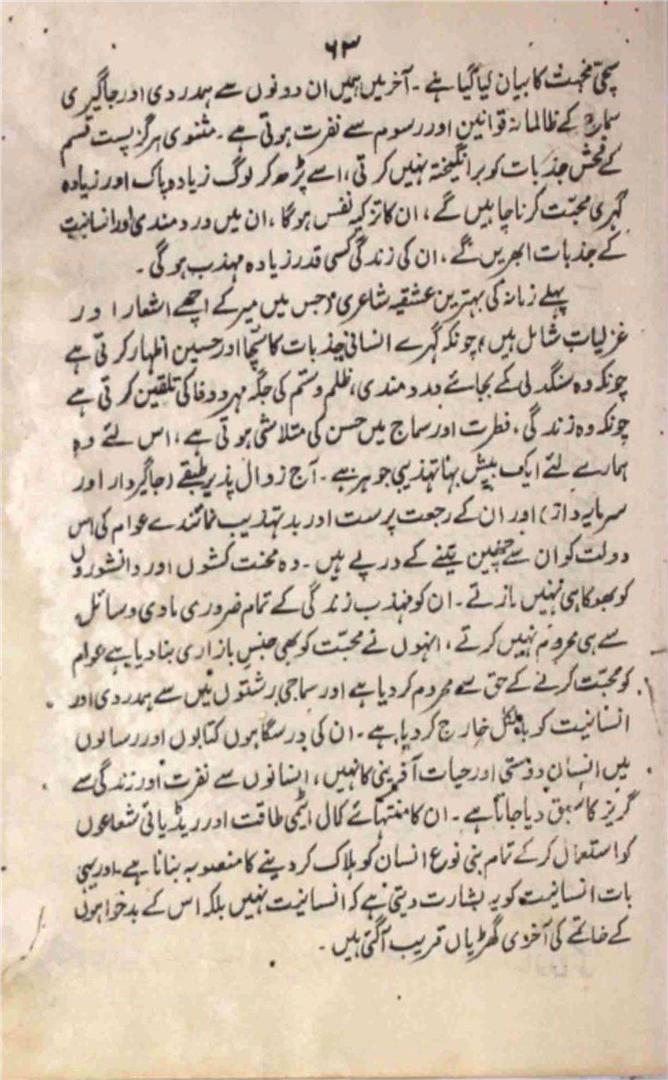 ۶۳
سچی محبت کا بیان کیا گیا ہے۔ آخر میں ہمیں ان دونوں سے ہمدردی اور جاگیری
سماج کے ظالمانہ قوانین اور رسوم سے نفرت ہوتی ہے۔ مثنوی ہرگز پست قسم
کے فحش جذبات کو برانگیختہ نہیں کرتی، اسے پڑھ کر لوگ زیادہ پاک اور زیادہ
گہری محبت کرنا چاہیں گے، ان کا تزکیہ نفس ہوگا، ان میں دردمندی اور انسانیت
کے جذبات ابھریں گے، ان کی زندگی کسی قدر زیادہ مہذب ہوگی۔
پہلے زمانہ کی بہترین عشقیہ شاعری (جس میں میر کے اچھے اشعار اور
غزلیات شامل ہیں) چونکہ گہرے انسانی جذبات کا سچا اور حسین اظہار کرتی ہے
چونکہ وہ سنگدلی کے بجائے دردمندی، ظلم و ستم کی جگہ مہر و وفا کی تلقین کرتی ہے
چونکہ وہ زندگی، فطرت اور سماج میں حسن کی متلاشی ہوتی ہے، اس لئے وہ
ہمارے لئے ایک بیش بہا تہذیبی جوہر ہے۔ آج زوال پذیر طبقے (جاگیردار اور
سرمایہ دار) اور ان کے رجعت پرست اور بدتہذیب نمائندے عوام کی اس
دولت کو ان سے چھین لینے کے درپے ہیں۔ وہ محنت کشوں اور دانشوروں
کو بھوکا ہی نہیں مارتے۔ ان کو مہذب زندگی کے تمام ضروری مادی وسائل
سے ہی محروم نہیں کرتے، انہوں نے محبت کو بھی جنس بازاری بنا دیا ہے عوام
کو محبت کرنے کے حق سے محروم کر دیا ہے اور سماجی رشتوں میں سے ہمدردی اور
انسانیت کو بالکل خارج کر دیا ہے۔ ان کی درسگاہوں کتابوں اور رسالوں
میں انسان دوستی اور حیات آفرینی کا نہیں، انسانوں سے نفرت اور زندگی سے
گریز کا سبق دیا جاتا ہے۔ ان کا منتہائے کمال ایٹمی طاقت اور ریڈیائی شعاعوں
کو استعمال کر کے تمام بنی نوع انسان کو ہلاک کر دینے کا منصوبہ بنانا ہے۔ اور یہی
بات انسانیت کو یہ بشارت دیتی ہے کہ انسانیت نہیں بلکہ اس کے بدخواہوں
کے خاتمے کی آخری گھڑیاں قریب آگئی ہیں۔